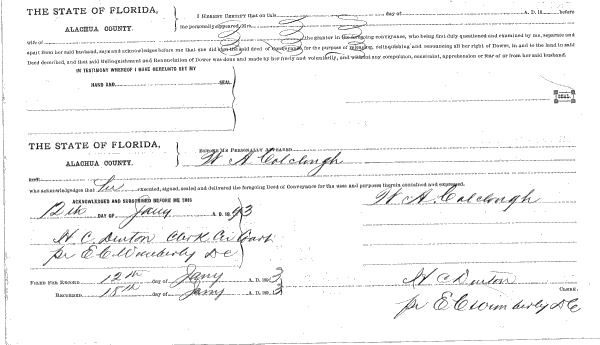 THE STATE OF FLORIDA,
ALACHUA COUNTY.
I HEREBY CERTIFY that on this day of A. D. 18 before
me personally appeared Mrs.
wife of the grantor in the foregoing conveyance, who being first duly questioned and examined by me, separate and
apart from her said husband, says and acknowledges before me that she did sign the said deed of conveyance for the purpose of releasing, relinquishing and renouncing all her right of Dower, in and to the land in said
Deed described, and that said Relinquishment and Renunciation of Dower was done and made by her freely and voluntarily, and without any compulsion, constraint, apprehension or fear of or from her said husband.
IN TESTIMONY WHEREOF I HAVE HEREUNTO SET MY
HAND AND SEAL
SEAL.
THE STATE OF FLORIDA,
ALACHUA COUNTY.
BEFORE ME PERSONALLY APPEARED
W A Colclough
who acknowledges that he executed, signed, sealed and delivered the foregoing Deed of Conveyance for the uses and purposes therein contained and expressed.
ACKNOWLEDGED AND SUBSCRIBED BEFORE ME THIS
12th DAY OF Jany A. D. 1893
W A. Colclough
H. C. Denton Clerk Cir Court
pr E C Wimberly D C
FILED FOR RECORD 12th day of Jany A. D. 1893
RECORDED 18th day of Jany A. D. 1893
H C Denton CLERK.
pr E C Wimberly D C